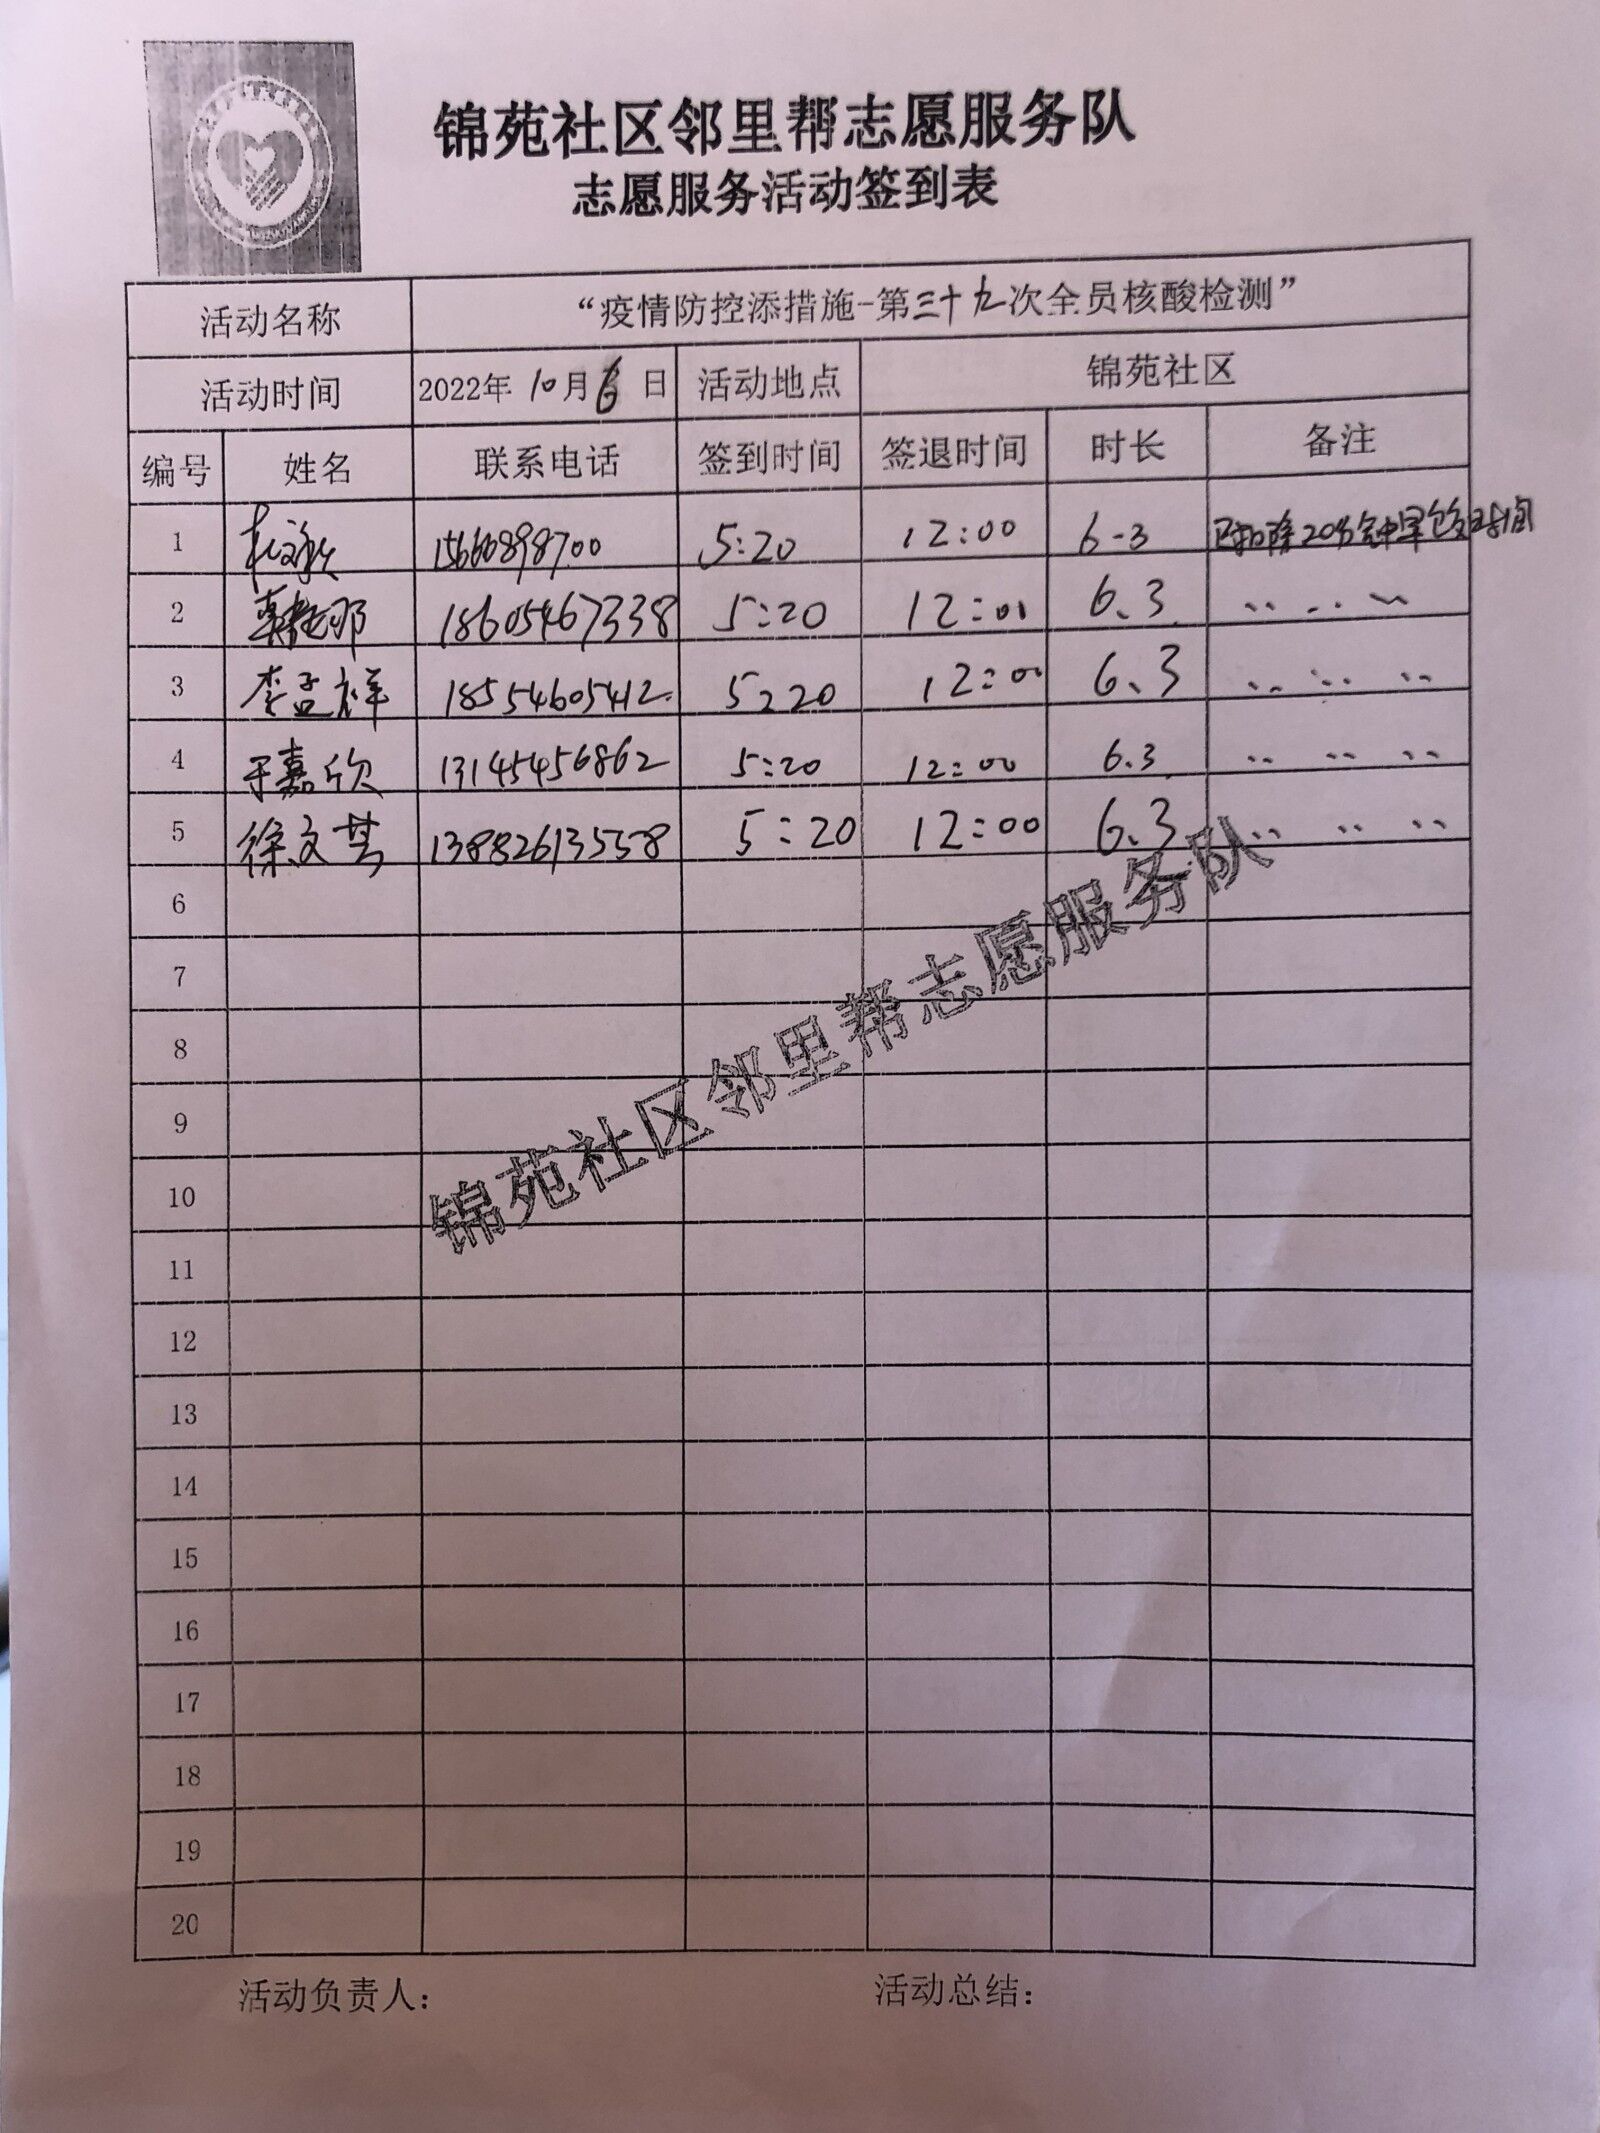 锦苑社区邻里帮志愿服务队
志愿服务活动签到表
活动名称 “疫情防控添措施-第三十九次全员核酸检测”
活动时间 2022年 10月6日 活动地点 锦苑社区
编号 姓名 联系电话 签到时间 签退时间 时长 备注
1 15660898700 5:20 12:00 6-3 已扣除20分钟早包含时间
2 18605467338 5:20 12:01 6.3
3 李孟祥 18554605412 5:20 12:00 6.3
4 于嘉欣 13145456862 5:20 12:00 6.3
5 徐文其 138826135558 5:20 12:00 6.3
6
7
8
9
10
11
12
13
14
15
16
17
18
19
20
锦苑社区邻里帮志愿服务队
活动负责人： 活动总结：